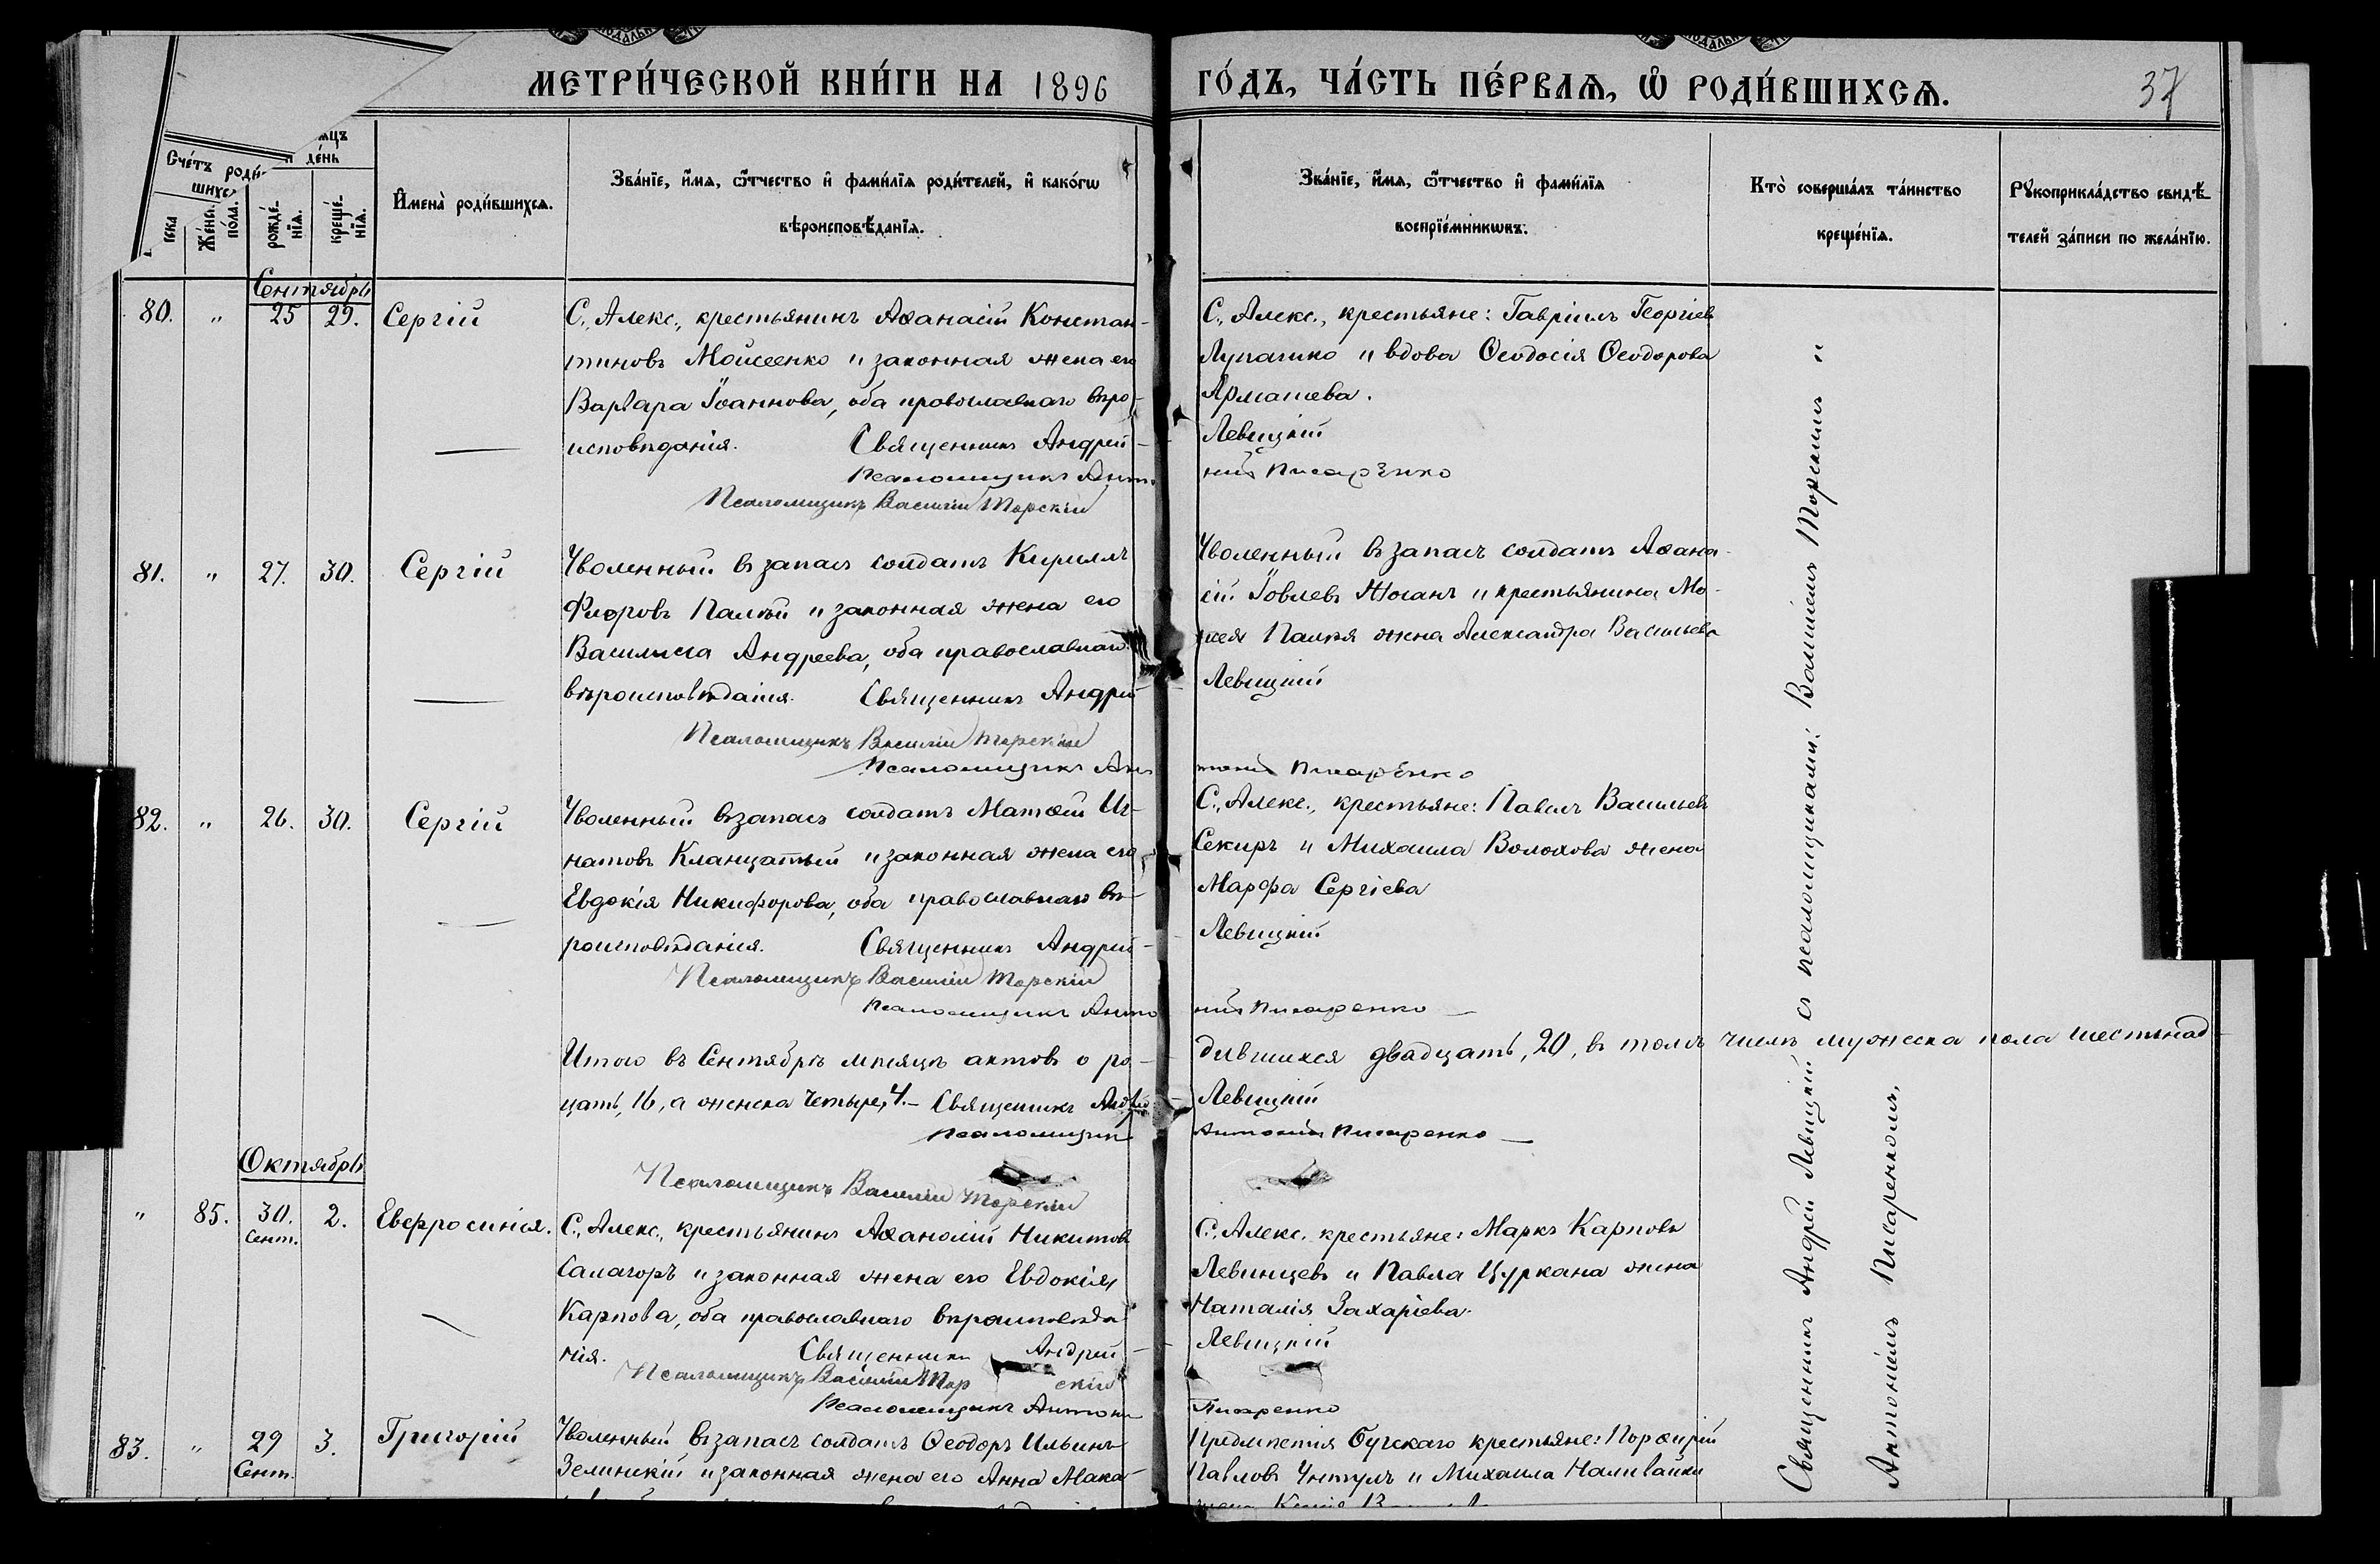 МЕТРИ́ЧЕСКОЙ КНИ́ГИ НА 1896 ГО́ДЪ, ЧА́СТЬ ПЕ́РВАѦ, Ѡ РОДИ́ВШИХСѦ.
37
Сче́тъ роди́вшихсѧ
де́нь
Же́нска по́ла.
рожде́нїѧ.
креще́нїѧ.
И҆мена̀ роди́вшихсѧ.
Зва́нїе, и҆́мѧ, ѻ҆́тчество и҆ фами́лїѧ роди́телей, и҆ како́гѡ
вѣроисповѣ́данїѧ.
Зва́нїе, и҆́мѧ, ѻ҆́тчество и҆ фами́лїѧ
воспрїе́мникѡвъ.
Кто̀ соверша́лъ та́инство
креще́нїѧ.
Рꙋкоприкла́дство свидѣ́-
телей за́писи по жела́нїю.
Сентябрь
80. " 25 29. Сергій
С. Алекс., крестьянинъ Аѳанасій Констан-
тиновъ Мойсеенко и законная жена его
Варвара Іоаннова, оба православнаго вѣро-
исповѣданія. Священникъ Андрей
Псаломщикъ Анто
Псаломщикъ Василій Торскій
С. Алекс., крестьяне: Гавріилъ Георгіевъ
Лупашко и вдова Ѳеодосія Ѳеодорова
Армашева.
Левицкій
ній Писаренко
81. " 27. 30. Сергій
Уволенный въ запасъ солдатъ Кириллъ
Флоровъ Палій и законная жена его
Василиса Андреева, оба православнаго
вѣроисповѣданія. Священникъ Андрей
Псаломщикъ Василій Торскій
Псаломщикъ Ан
Уволенный въ запасъ солдатъ Аѳана-
сій Іовлевъ Жосанъ и крестьянина Мо-
исея Палія жена Александра Васильева
Левицкій
тоній Писаренко
82. " 26. 30. Сергій
Уволенный въ запасъ солдатъ Матѳей Иг-
натовъ Кланцатый и законная жена его
Евдокія Никифорова, оба православнаго вѣ-
роисповѣданія. Священникъ Андрей
Псаломщикъ Василій Торскій
Псаломщикъ Анто
С. Алекс., крестьяне: Павелъ Васильевъ
Секиръ и Михаила Волохова жена
Марфа Сергіева
Левицкій
ній Писаренко
Итого въ Сентябрѣ мѣсяцѣ актовъ о ро-
дившихся двадцать, 20, въ томъ числѣ мужеска пола шестнад-
цать, 16, а женска четыре, 4. – Священникъ Андрей
Левицкій
Псаломщикъ
Антоній Писаренко
Псаломщикъ Василій Торскій
Октябрь
" 85. 30. Сент. 2. Евфросинія.
С. Алекс., крестьянинъ Аѳанасій Никитовъ
Салагоръ и законная жена его Евдокія
Карпова, оба православнаго вѣроисповѣда-
нія. Священникъ Андрей
Псаломщикъ Василій Торскій
Псаломщикъ Антоній
С. Алекс. крестьяне: Маркъ Карповъ
Левинцевъ и Павла Цуркана жена
Наталія Захаріева.
Левицкій
Писаренко
83. " 29 Сент. 3. Григорій
Уволенный въ запасъ солдатъ Ѳеодоръ Ильинъ
Зелинскій и законная жена его Анна Мака-
Предмѣстія Бугскаго крестьяне: Порфирій
Павловъ Унтулъ и Михаила Наливайки
Священникъ Андрей Левицкій съ псаломщиками: Василіемъ Торскимъ и
Антоніемъ Писаренкомъ.